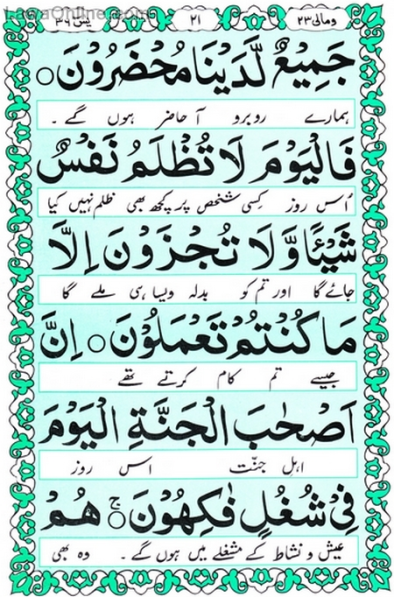 LawaOnline.com
ومالی ۲۳ ۲۱ یٰسٓ ۳۶
جَمِیۡعٌ لَّدَیۡنَا مُحۡضَرُوۡنَ ○
ہمارے روبرو آ حاضر ہوں گے ۔
فَالۡیَوۡمَ لَا تُظۡلَمُ نَفۡسٌ
اُس روز کِسی شخص پر کچھ بھی ظلم نہیں کیا
شَیۡـًٔا وَّلَا تُجۡزَوۡنَ اِلَّا
جائے گا اور تم کو بدلہ ویسا ہی ملے گا
مَا کُنۡتُمۡ تَعۡمَلُوۡنَ ○ اِنَّ
جیسے تم کام کرتے تھے
اَصۡحٰبَ الۡجَنَّةِ الۡیَوۡمَ
اہل جنّت اس روز
فِیۡ شُغُلٍ فٰکِہُوۡنَ ○ۚ ہُمۡ
عیش و نشاط کے مشغلے میں ہوں گے ۔ وہ بھی